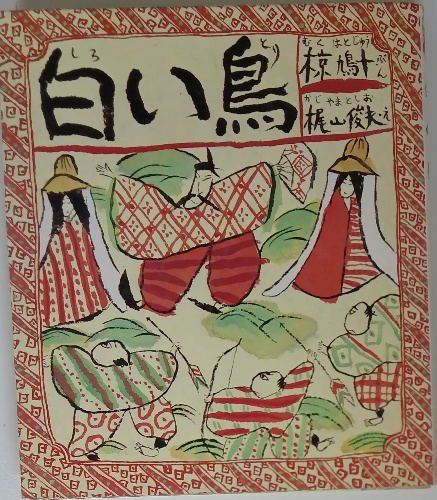 しろ とり
白い鳥
むく はとじゅう
椋 鳩十 ぶん
かじやまとしお
梶山俊夫・え